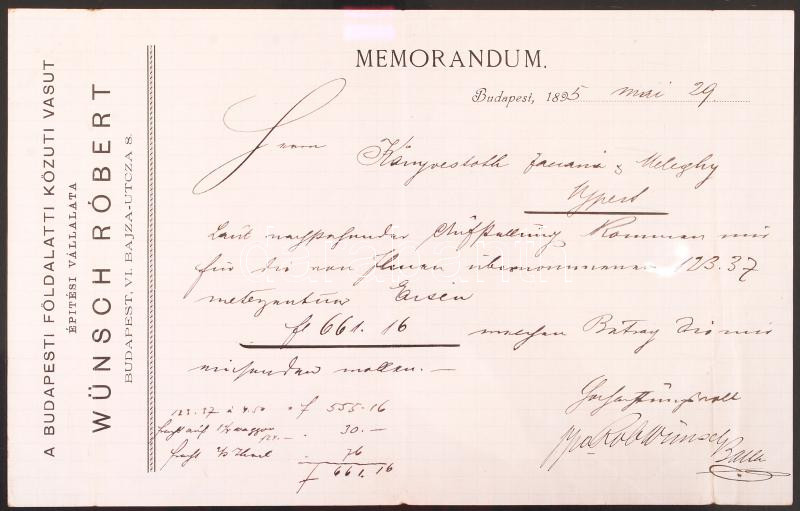 A BUDAPESTI FÖLDALATTI KÖZUTI VASUT
ÉPITÉSI VÁLLALATA
WÜNSCH RÓBERT
BUDAPEST, VI. BAJZA-UTCZA 8.
MEMORANDUM.
Budapest, 1895 mai 29
Herrn
Könyvestóth & Meleghy
Ujpest
Laut nachstehender Aufstellung kommen mir
für die von Ihnen übernommenen 123.37
meterzentner Eisen
fl 661.16 welchen Betrag Sie mir
einsenden wollen.—
Hochachtungsvoll
pp. Rob Wünsch
123.37 à 4.50 f 555.16
Fracht auf 1 1/4 waggon 30.—
76
f 661.16